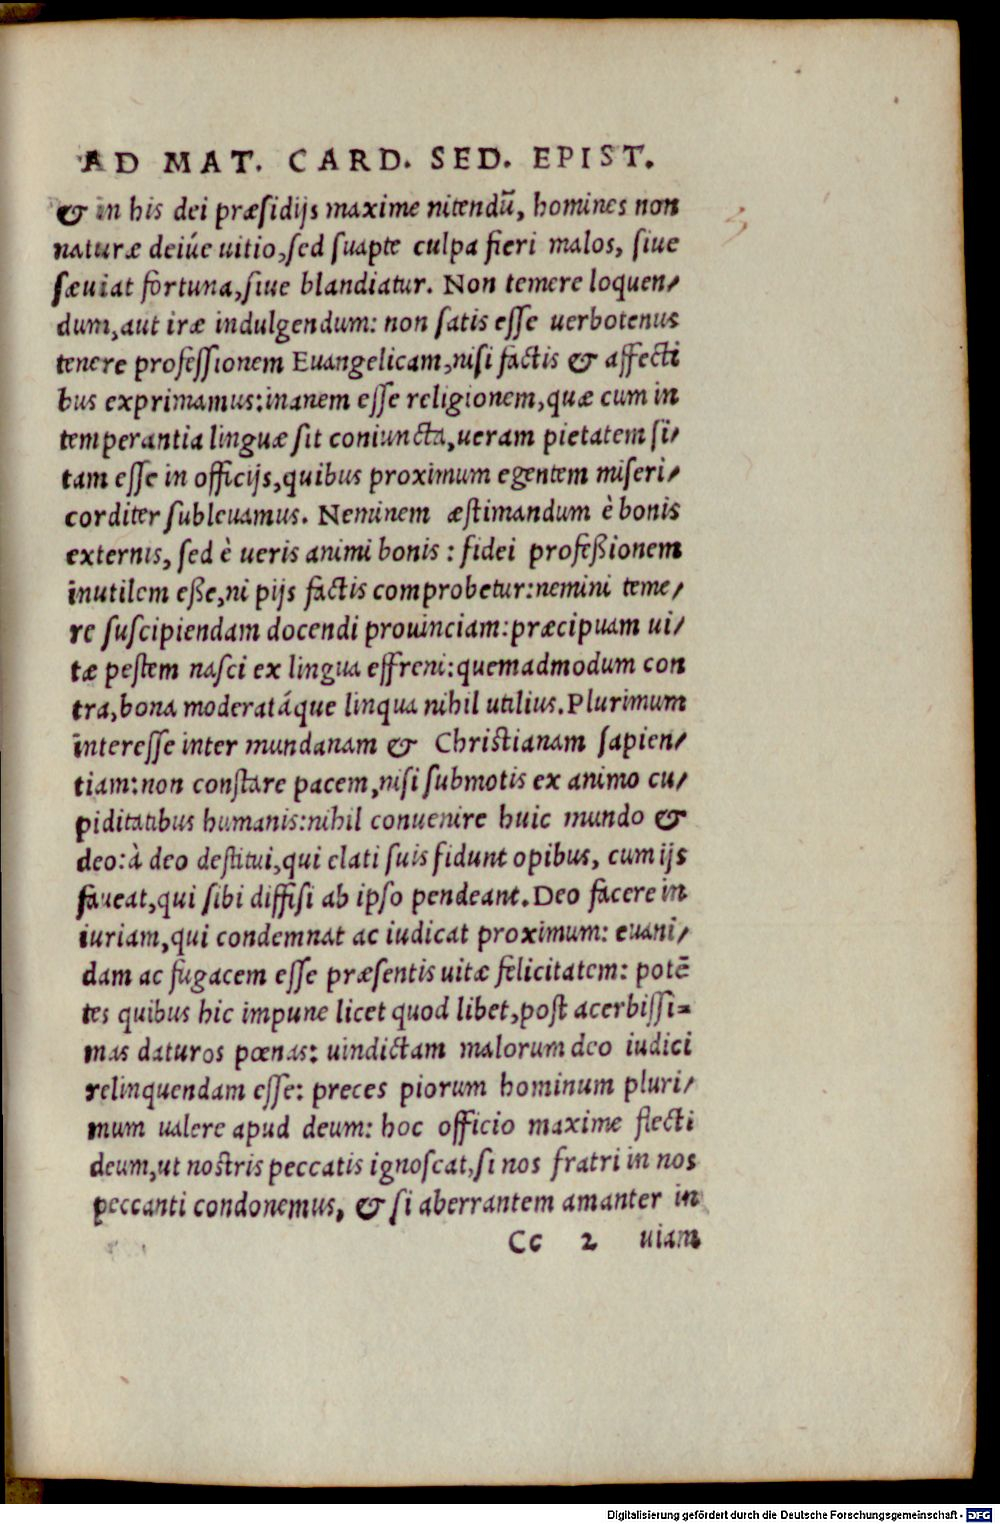 AD MAT. CARD. SED. EPIST.
& in his dei præsidijs maxime nitendū, homines non
naturæ deiúe uitio, sed suapte culpa fieri malos, siue
sæuiat fortuna, siue blandiatur. Non temere loquen/
dum, aut iræ indulgendum: non satis esse uerbotenus
tenere professionem Euangelicam, nisi factis & affecti
bus exprimamus: inanem esse religionem, quæ cum in
temperantia linguæ sit coniuncta, ueram pietatem si/
tam esse in officijs, quibus proximum egentem miseri/
corditer subleuamus. Neminem æstimandum è bonis
externis, sed è ueris animi bonis: fidei profeßionem
inutilem eße, ni pijs factis comprobetur: nemini teme/
re suscipiendam docendi prouinciam: præcipuam ui/
tæ pestem nasci ex lingua effreni: quemadmodum con
tra, bona moderatáque linqua nihil utilius. Plurimum
interesse inter mundanam & Christianam sapien/
tiam: non constare pacem, nisi submotis ex animo cu/
piditatibus humanis: nihil conuenire huic mundo &
deo: à deo destitui, qui elati suis fidunt opibus, cum ijs
faueat, qui sibi diffisi ab ipso pendeant. Deo facere in
iuriam, qui condemnat ac iudicat proximum: euani/
dam ac fugacem esse præsentis uitæ felicitatem: potē
tes quibus hic impune licet quod libet, post acerbissi=
mas daturos pœnas: uindictam malorum deo iudici
relinquendam esse: preces piorum hominum pluri/
mum ualere apud deum: hoc officio maxime flecti
deum, ut nostris peccatis ignoscat, si nos fratri in nos
peccanti condonemus, & si aberrantem amanter in
Cc 2 uiam
Digitalisierung gefördert durch die Deutsche Forschungsgemeinschaft - DFG